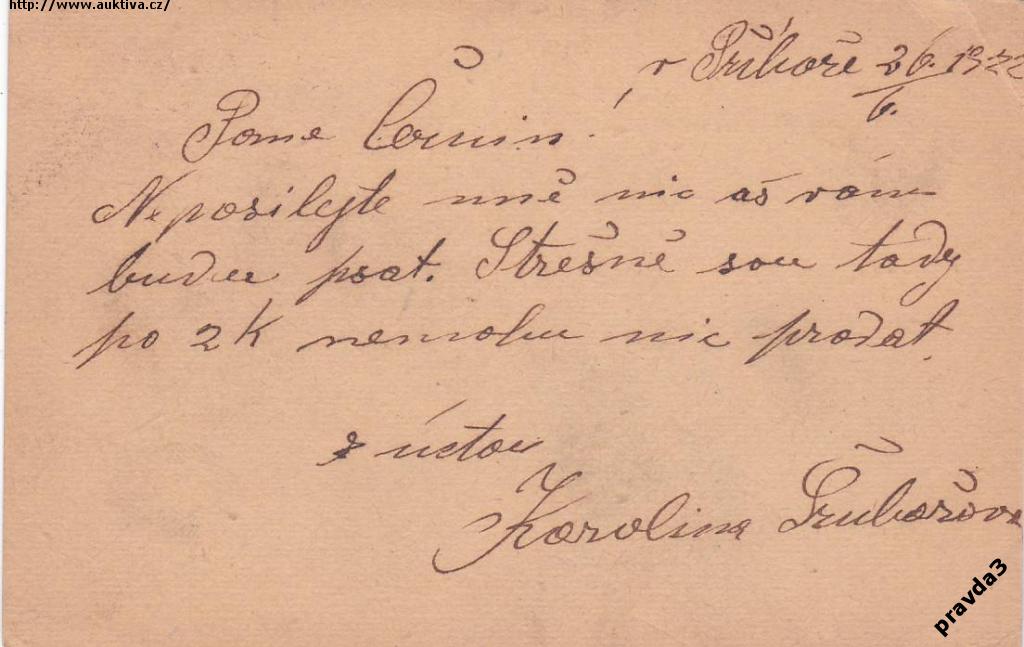 http://www.auktiva.cz/
v Příboře 26/6. 1922
Pane
Neposilejte mně nic aš vám
budu psat. Střešně sou tady
po 2 K nemohu nic prodat.
z úctou
Karolina
pravda3